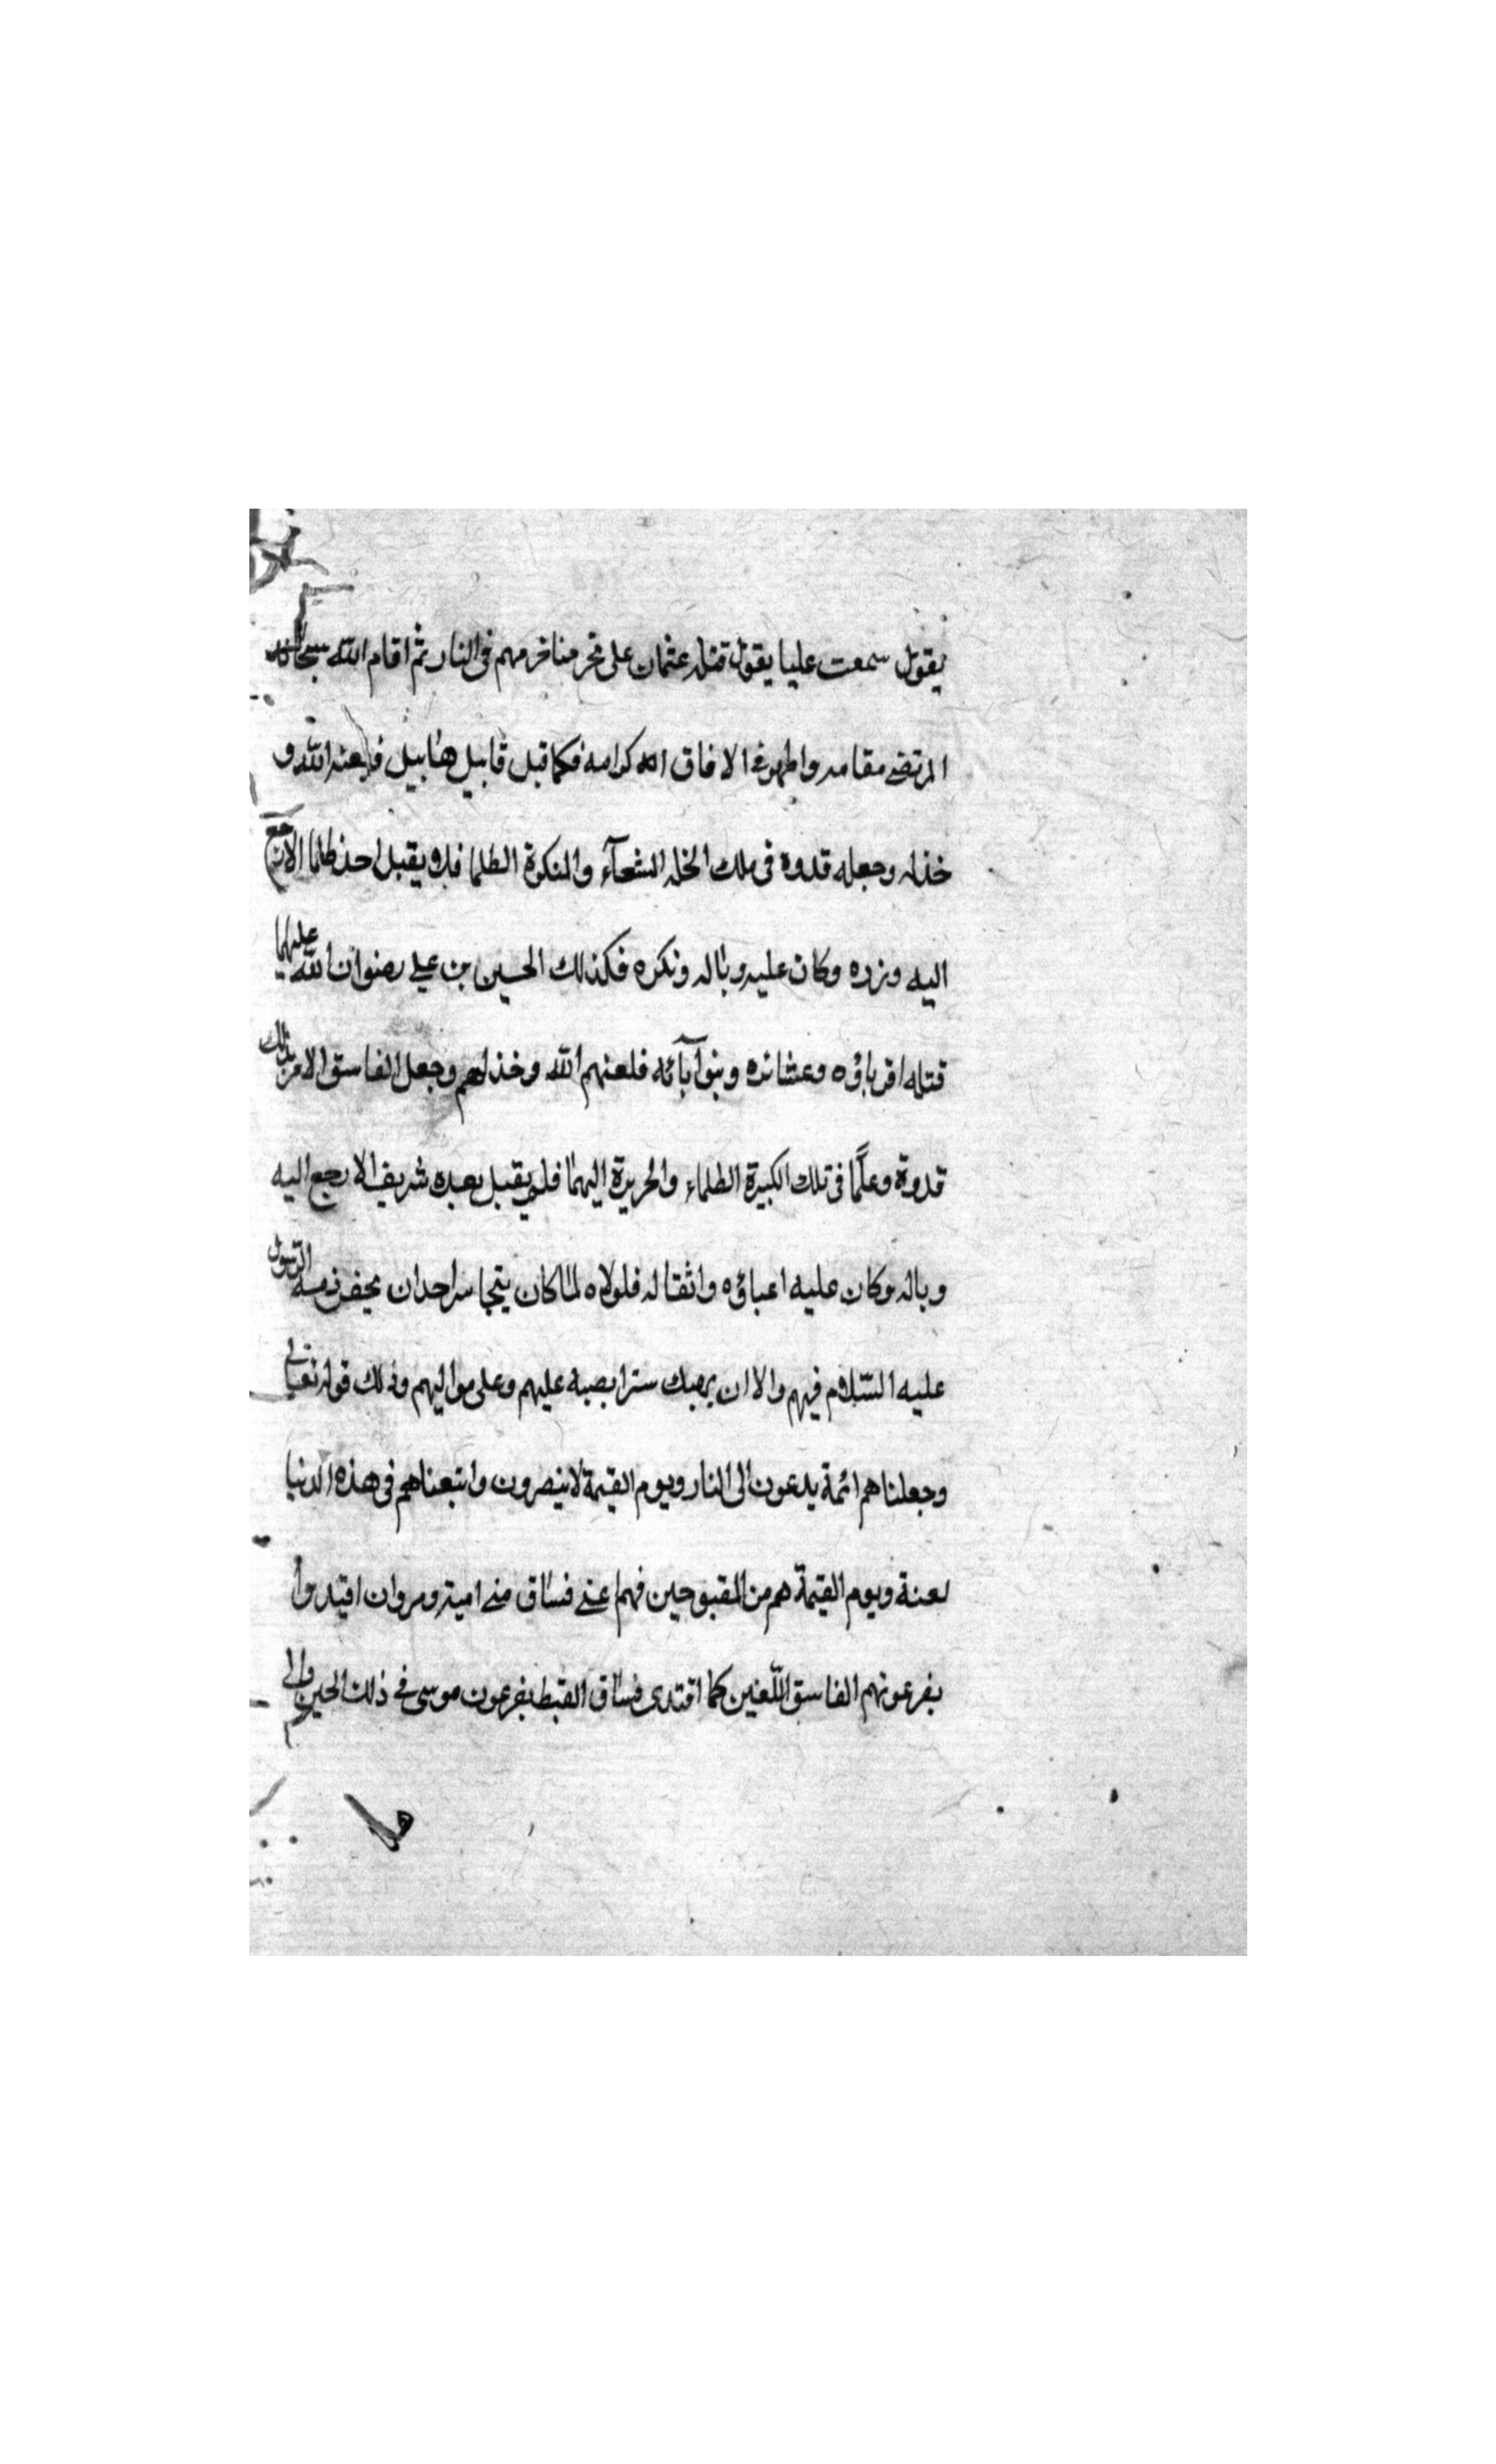 يقول سمعت عليا يقول قتله عثمان على نحر مناخرهم فى النار ثم اقام الله سبحانه
المرتضى مقامه واظهر فى الافاق الله كرامه فكما قبل قابيل هابيل فلعنه الله و
خذله وجعله قدوه فى تلك الخله الشعآء والمنكرة الظلما فلم يقبل احد ظلما الا رجع
اليه وزره وكان عليه وباله ونكره فكذلك الحسين بن على رضوان الله عليهما
قتله اقرباؤه وعشائره وبنوا آبائه فلعنهم الله وخذلهم وجعل الفاسق الامر بذلك
قدوة وعلمًا فى تلك الكبيرة الظلماء والجريرة اليهما فلم يقبل بعده شريف الا رجع اليه
وباله وكان عليه اعباؤه واثقاله فلولاه لما كان يتجاسر احد ان يخفر ذمة الرسول
عليه السلام فيهم والا ان يهتك سترا يصبه عليهم وعلى مواليهم وذلك قوله تعالى
وجعلناهم ائمة يدعون الى النار ويوم القيمة لا ينصرون واتبعناهم فى هذه الدنيا
لعنة ويوم القيمة هم من المقبوحين فهم اعنى فساق منى امية ومروان اقتدوا
بفرعونهم الفاسق اللعين كما اقتدى فساق القبط بفرعون موسى فى ذلك الحين والى